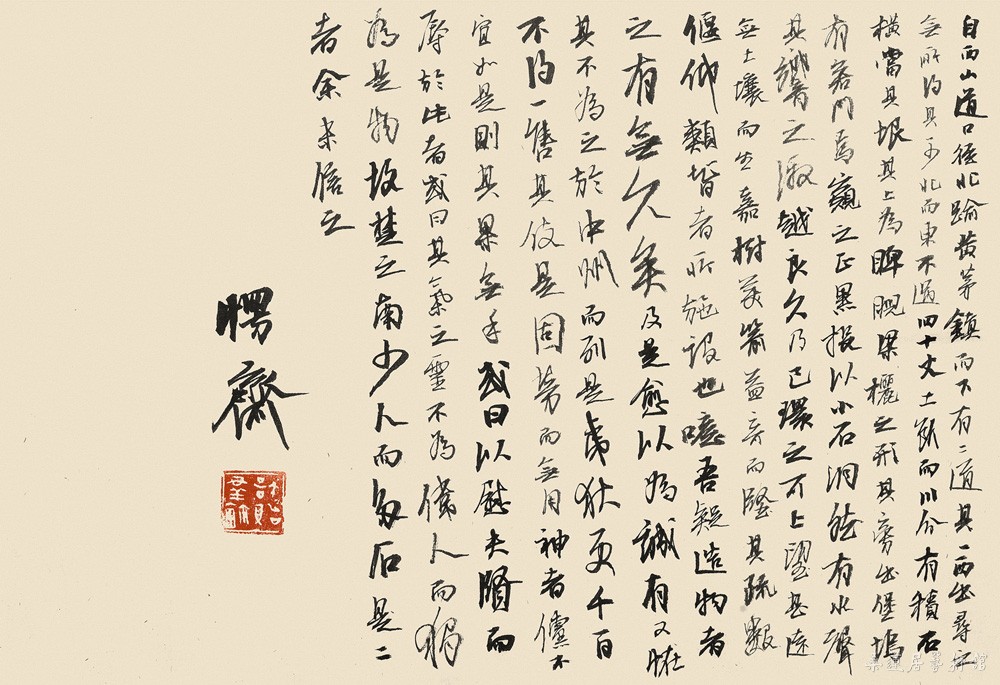 自西山道口徑北踰黃茅鎮而下有二道其一西出尋之
無所得其一少北而東不過四十丈土斷而川分有積石
橫當其垠其上為睥睨梁欐之形其旁出堡塢
有若門焉窺之正黑投以小石洞然有水聲
其響之激越良久乃已環之可上望甚遠
無土壤而生嘉樹美箭益奇而堅其疏數
偃仰類智者所施設也噫吾疑造物者
之有無久矣及是愈以為誠有又怪
其不為之於中州而列是夷狄更千百
不得一售其伎是固勞而無用神者儻不
宜如是則其果無乎或曰以慰夫賢而
辱於此者或曰其氣之靈不為偉人而獨
為是物故楚之南少人而多石是二
者余未信之
齋